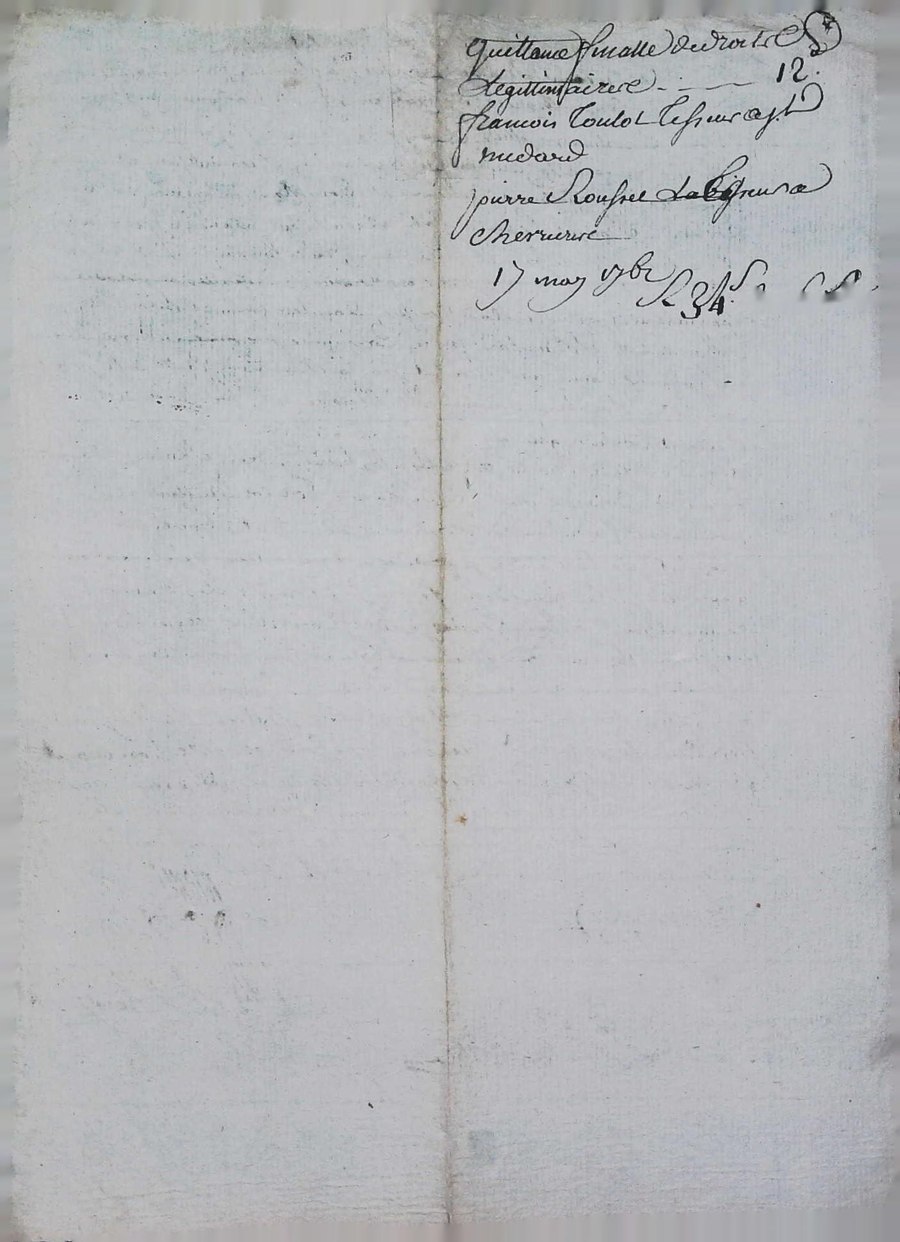 quittance finalle de droits
Legittimaires 12
francois Toulot Tisseur a st
medard
pierre Rousset Laboureur a
cherier
17 may 176
34